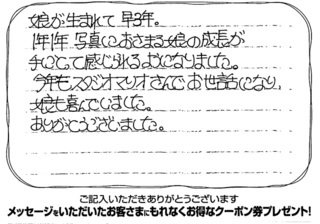 娘が生まれて早3年。
1年1年写真におさまる娘の成長が
手にとって感じられるようになりました。
今年もスタジオマリオさんでお世話になり、
娘も喜んでいました。
ありがとうございました。
ご記入いただきありがとうございます
メッセージをいただいたお客さまにもれなくお得なクーポン券プレゼント!